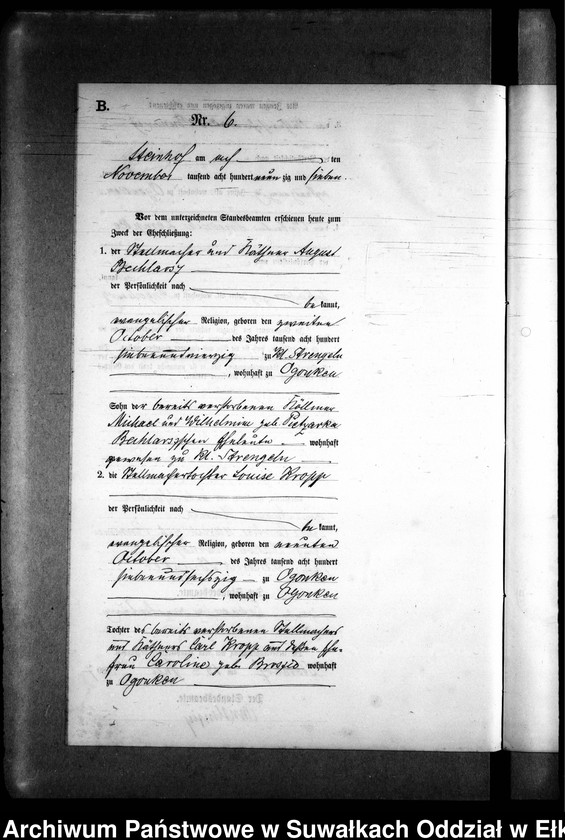 B.
Nr. 6.
Steinhof am acht ten
November tausend acht hundert neun zig und sieben.
Vor dem unterzeichneten Standesbeamten erschienen heute zum
Zweck der Eheschließung:
1. der Stellmacher und Käthner August
der Persönlichkeit nach
be kannt,
evangelischer Religion, geboren den zweiten
October des Jahres tausend acht hundert
siebenundvierzig zu Kl. Strengeln
, wohnhaft zu Ogonken
Sohn der bereits verstorbenen Köllmer
Michael und Wilhelmine geb. Pietzarka
Eheleute wohnhaft
gewesen zu Kl. Strengeln
2. die Stellmachertochter Louise Kropp
der Persönlichkeit nach
be kannt,
evangelischer Religion, geboren den neunten
October des Jahres tausend acht hundert
siebenundsechszig zu Ogonken
, wohnhaft zu Ogonken
Tochter des bereits verstorbenen Stellmachers
und Käthners Carl Kropp und dessen Ehe-
frau Caroline geb. wohnhaft
zu Ogonken
Archiwum Państwowe w Suwałkach Oddział w Ełk